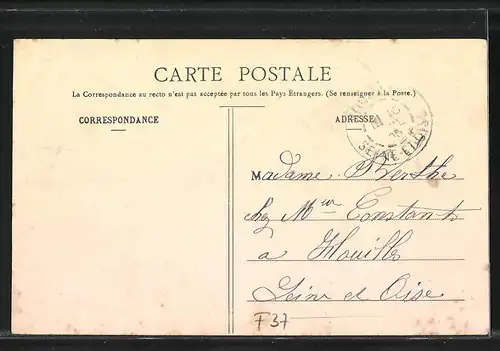 CARTE POSTALE
La Correspondance au recto n'est pas acceptée par tous les Pays Étrangers. (Se renseigner à la Poste.)
CORRESPONDANCE
ADRESSE
SEINE-ET-OISE
Madame Berthe
chez Mr Constant
a Houilles
Seine et Oise
F37